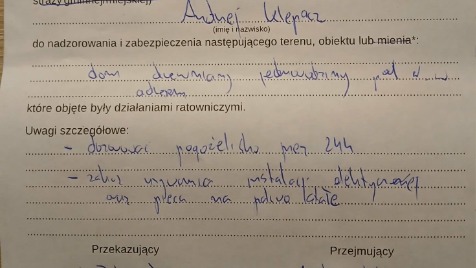 straży gminnej/miejskiej)
Andrzej Klepacz
(imię i nazwisko)
do nadzorowania i zabezpieczenia następującego terenu, obiektu lub mienia*:
dom drewniany jednorodzinny pod
adresem
które objęte były działaniami ratowniczymi.
Uwagi szczegółowe:
- dozorować pogorzelisko przez 24h
- zakaz używania instalacji elektrycznej
oraz pieca na paliwo stałe
Przekazujący Przejmujący